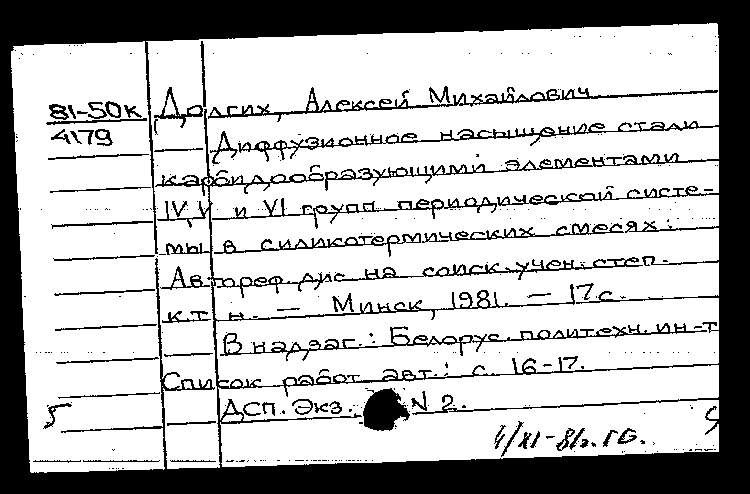 81-50к Долгих, Алексей Михайлович
4179 Диффузионное насыщение стали
карбидообразующими элементами
IV, V и VI групп периодической систе-
мы в силикотермических смесях:
Автореф. дис на соиск. учен. степ.
к.т н. — Минск, 1981. — 17 с.
В надзаг.: Белорус. политехн. ин-т
Список работ авт.: с. 16-17.
ДСП. Экз. N 2.